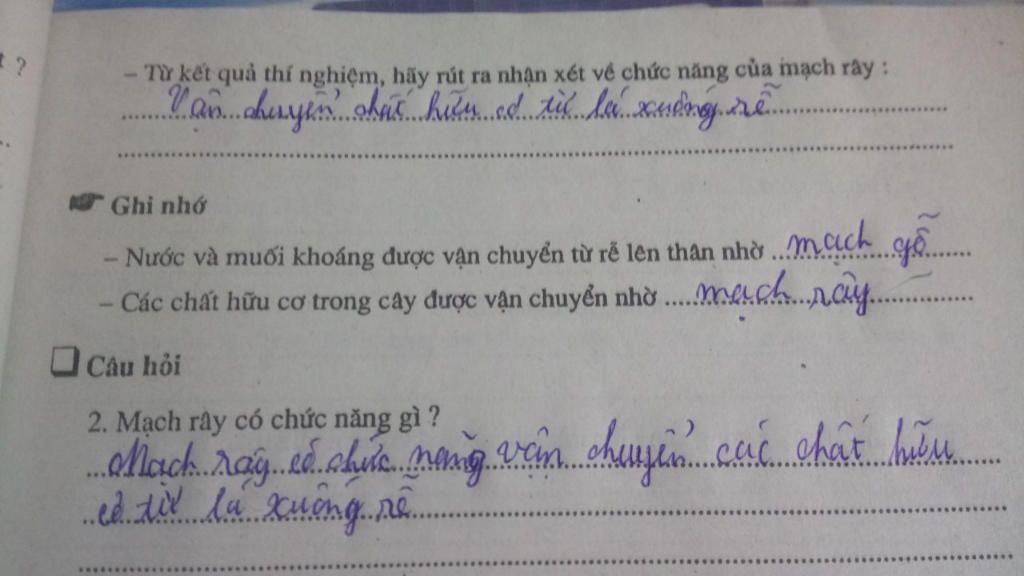 – Từ kết quả thí nghiệm, hãy rút ra nhận xét về chức năng của mạch rây :
Vận chuyển chất hữu cơ từ lá xuống rễ
Ghi nhớ
– Nước và muối khoáng được vận chuyển từ rễ lên thân nhờ mạch gỗ
– Các chất hữu cơ trong cây được vận chuyển nhờ mạch rây
Câu hỏi
2. Mạch rây có chức năng gì ?
Mạch rây có chức năng vận chuyển các chất hữu
cơ từ lá xuống rễ